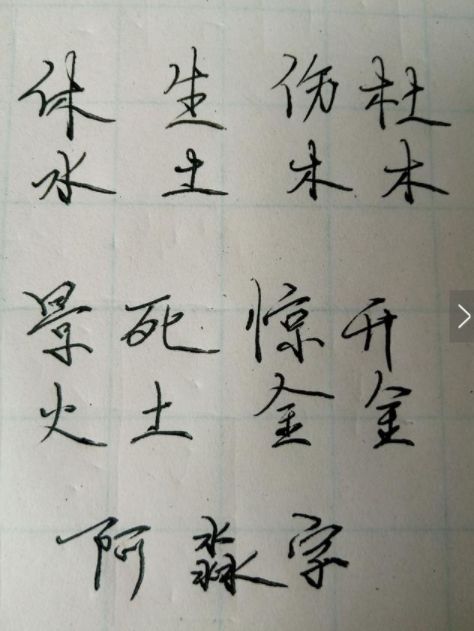 休 生 伤 杜
水 土 木 木
景 死 惊 开
火 土 金 金
阿淼字